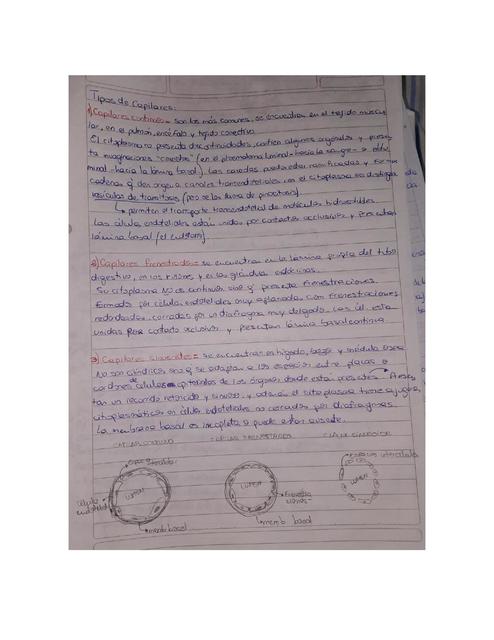 Tipos de Capilares:
1) Capilares continuos = son los más comunes, se encuentran en el tejido muscu
lar, en el pulmón, encéfalo y tejido conectivo.
El citoplasma no presenta discontinuidades, contien algunos orgánulos y presen
ta invaginaciones "caveolas" (en el plasmalema luminal - hacia la sangre - o
minal - hacia la lámina basal). Las caveolas pueden estar ramificadas y formar
cadenas q' dan origen a canales transendoteliales en el citoplasma
vesículas de transitosis
permiten el transporte transendotelial de moléculas hidrosolubles
Las células endoteliales están unidas por contactos occlusivos y
lámina basal
2) Capilares Fenestrados = se encuentran en la lámina propia del tubo
digestivo, en los riñones y en las glándulas endócrinas.
Su citoplasma NO es continuo sino q' presenta Fenestraciones.
Formado por células endoteliales muy aplanadas con Fenestraciones
redondeadas cerradas por un diafragma muy delgado. Las cél. están
unidas por contacto oclusivo y presentan lámina basal continua.
3) Capilares sinusoides = se encuentran en hígado, bazo y médula ósea
No son cilíndricos sino q' se adaptan a los espacios entre placas o
cordones de células epiteliales de los órganos donde están presentes. Presen
tan un recorrido retorcido y sinuoso, y además el citoplasma tiene agujeros
citoplasmáticos en célula endoteliales no cerrados por diafragmas.
La membrana basal es incompleta o puede estar ausente.
CAPILAR CONTINUO CAPILAR FENESTRADO CAPILAR SINUSOIDE
LUMEN LUMEN LUMEN
célula
endotelial
memb basal
memb basal